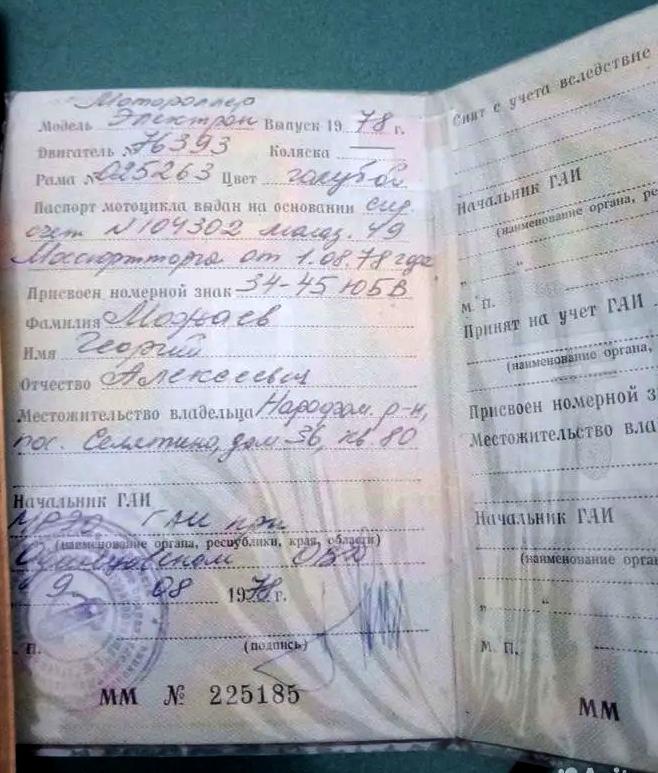 Мотороллер
Модель Электрон Выпуск 1978 г.
Двигатель № 76393 Коляска —
Рама № 025263 Цвет голубой
Паспорт мотоцикла выдан на основании
счет N 104302 магаз. 49
Мосспортторга от 1.08.78 года
Присвоен номерной знак 34-45 ЮБВ
Фамилия
Имя Георгий
Отчество Алексеевич
Местожительство владельца Нарофом. р-н,
пос. Селятино, дом 36, кв. 80
Начальник ГАИ
МРЭО ГАИ при
(наименование органа, республики, края, области)
Одинцовском ОВД
"9" 08 1978 г.
М. П.
(подпись)
ММ № 225185
Снят с учета вследствие
Начальник ГАИ
(наименование органа, ре
" "
М. П.
Принят на учет ГАИ
(наименование органа,
Присвоен номерной з
Местожительство вла
Начальник ГАИ
(наименование орган
" "
М. П.
ММ